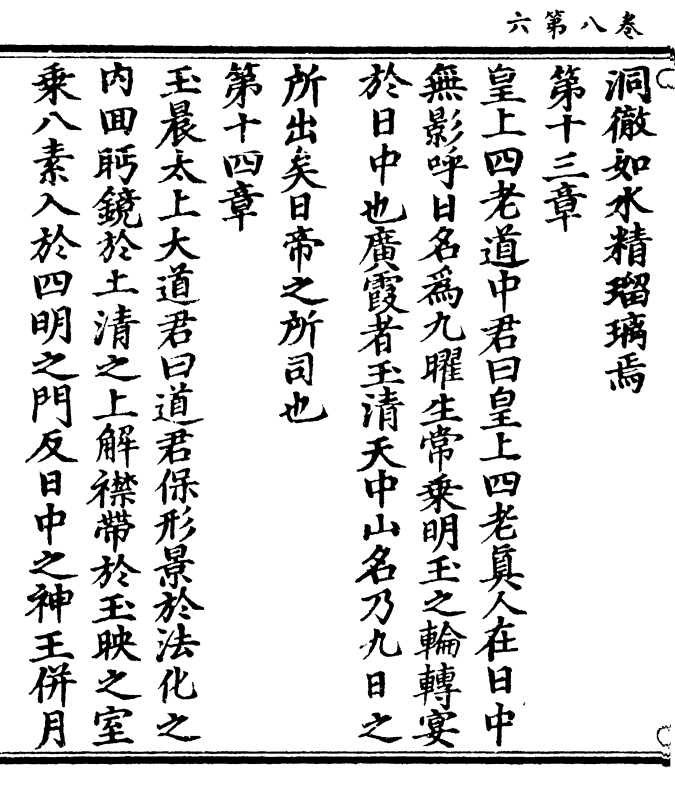 卷八第六
洞徹如水精瑠璃焉
第十三章
皇上四老道中君曰皇上四老眞人在日中
無影呼日名爲九曜生常乘明玉之輪轉宴
於日中也廣霞者玉清天中山名乃九日之
所出矣日帝之所司也
第十四章
玉晨太上大道君曰道君保形景於法化之
內回眄鏡於上清之上解襟帶於玉映之室
乘八素入於四明之門反日中之神王併月